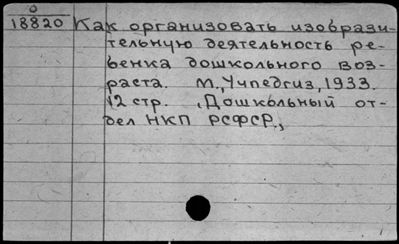 0
18820 Как организовать изобрази-
тельную деятельность ре-
бенка дошкольного воз-
раста. М., Учпедгиз, 1933.
12 стр. , Дошкольный от-
дел НКП РСФСР.,